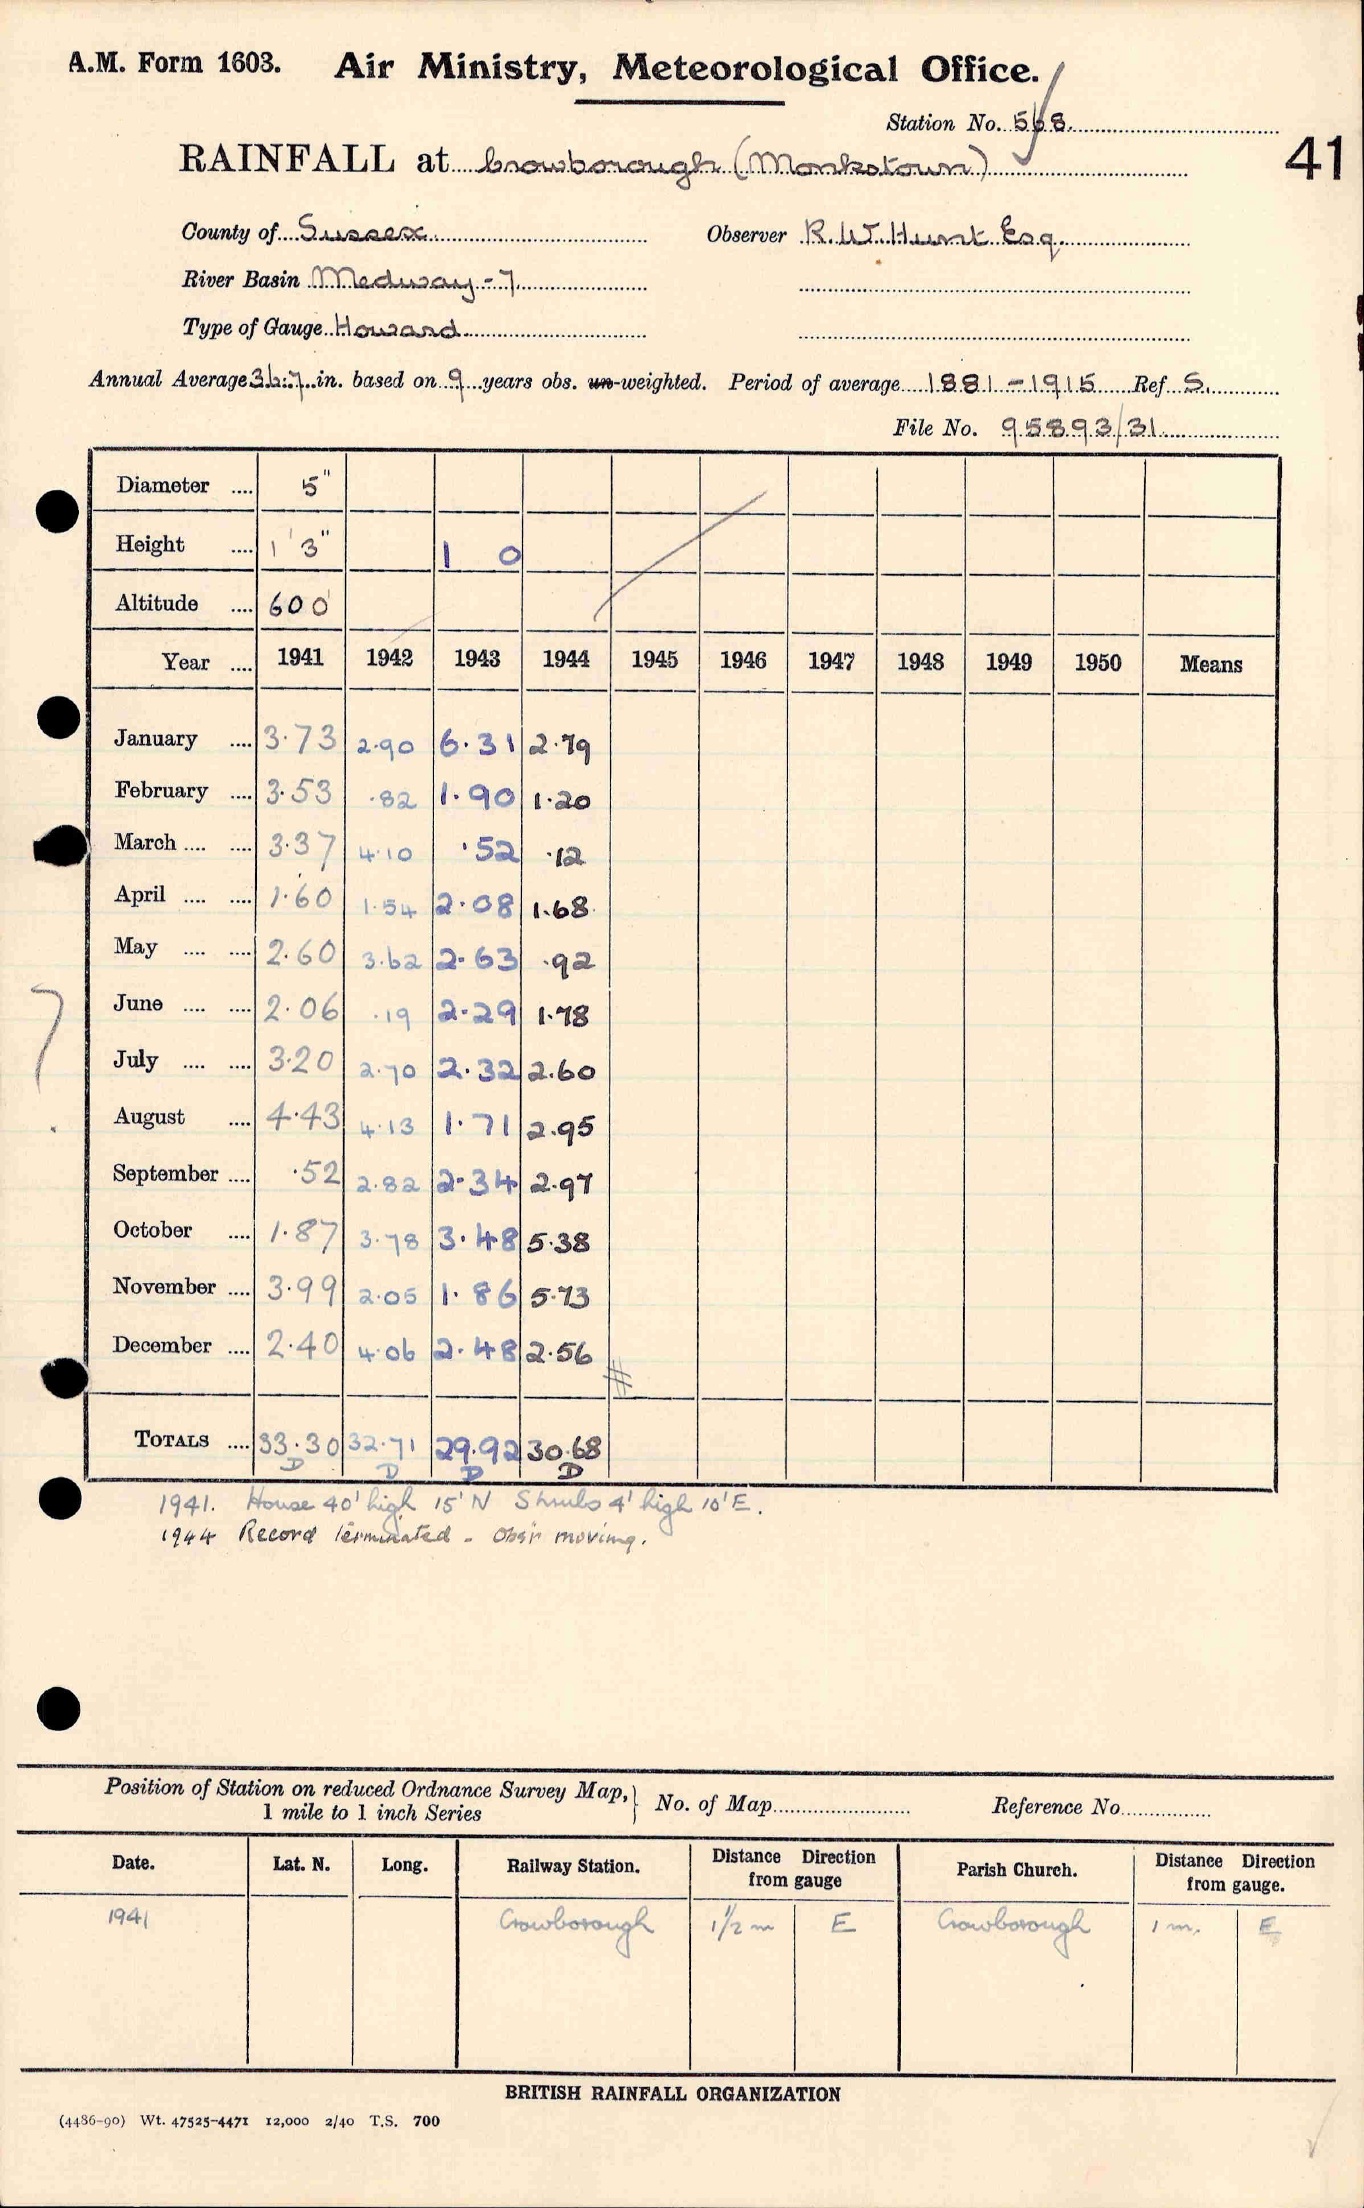 A.M. Form 1603. Air Ministry, Meteorological Office.
Station No. 568.
41
RAINFALL at Crowborough (Monkstown)
County of Sussex. Observer R. W. Hunt Esq.
River Basin Medway - 7.
Type of Gauge Howard.
Annual Average 36.7 in. based on 9 years obs. un-weighted. Period of average 1881 - 1915 Ref S.
File No. 95893/31
Diameter .... 5"
Height .... 1' 3" 1 0
Altitude .... 600'
Year .... 1941 1942 1943 1944 1945 1946 1947 1948 1949 1950 Means
January .... 3.73 2.90 6.31 2.79
February .... 3.53 .82 1.90 1.20
March .... .... 3.37 4.10 .52 .12
April .... .... 1.60 1.54 2.08 1.68
May .... .... 2.60 3.62 2.63 .92
June .... .... 2.06 .19 2.29 1.78
July .... .... 3.20 2.70 2.32 2.60
August .... 4.43 4.13 1.71 2.95
September .... .52 2.82 2.34 2.97
October .... 1.87 3.78 3.48 5.38
November .... 3.99 2.05 1.86 5.73
December .... 2.40 4.06 2.48 2.56
TOTALS .... 33.30 32.71 29.92 30.68
D D D D
1941. House 40' high 15' N Shrubs 4' high 10' E.
1944 Record terminated - Obsr moving.
Position of Station on reduced Ordnance Survey Map, 1 mile to 1 inch Series } No. of Map Reference No.
Date. Lat. N. Long. Railway Station. Distance Direction from gauge Parish Church. Distance Direction from gauge.
1941 Crowborough 1 1/2 m E Crowborough 1 m. E
BRITISH RAINFALL ORGANIZATION
(4486-90) Wt. 47525-4471 12,000 2/40 T.S. 700